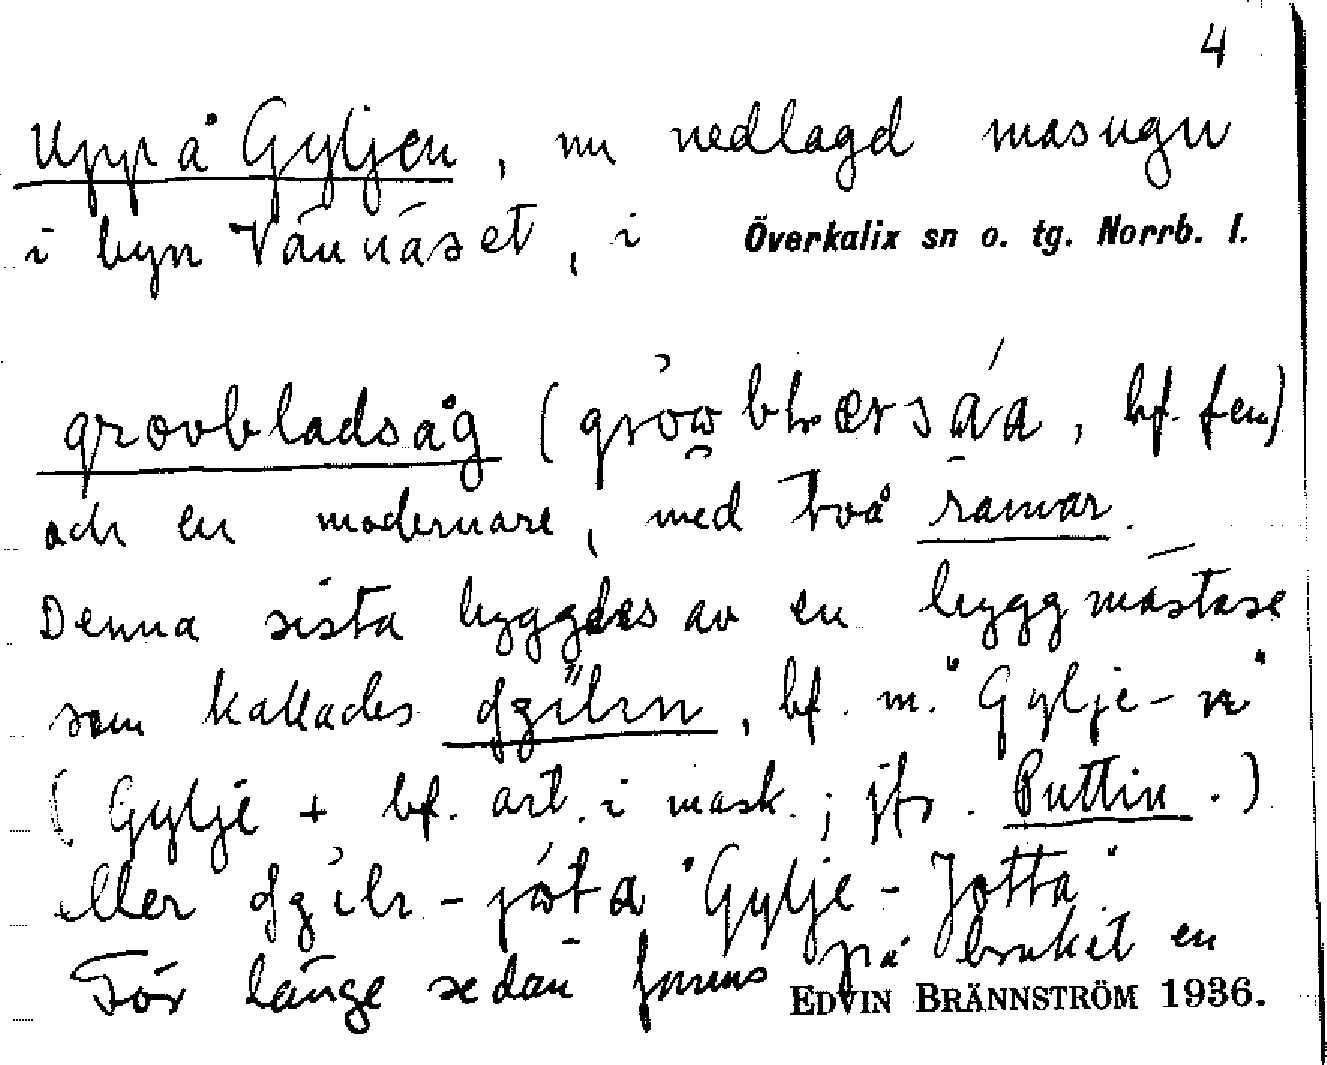 4
Uppå Gyljen, nu nedlagd masugn
i byn Vännäset, i Överkalix sn o. tg. Norrb. l.
grovbladsåg (, bf. fem)
och en modernare, med två ramar.
Denna sista byggdes av en byggmästare
som kallades, bf. m. "Gylje-n"
(Gylje + bf. art. i mask.; jfr. Puttin.)
eller "Gylje-Jotta"
För länge sedan fanns på bruket en
EDVIN BRÄNNSTRÖM 1936.